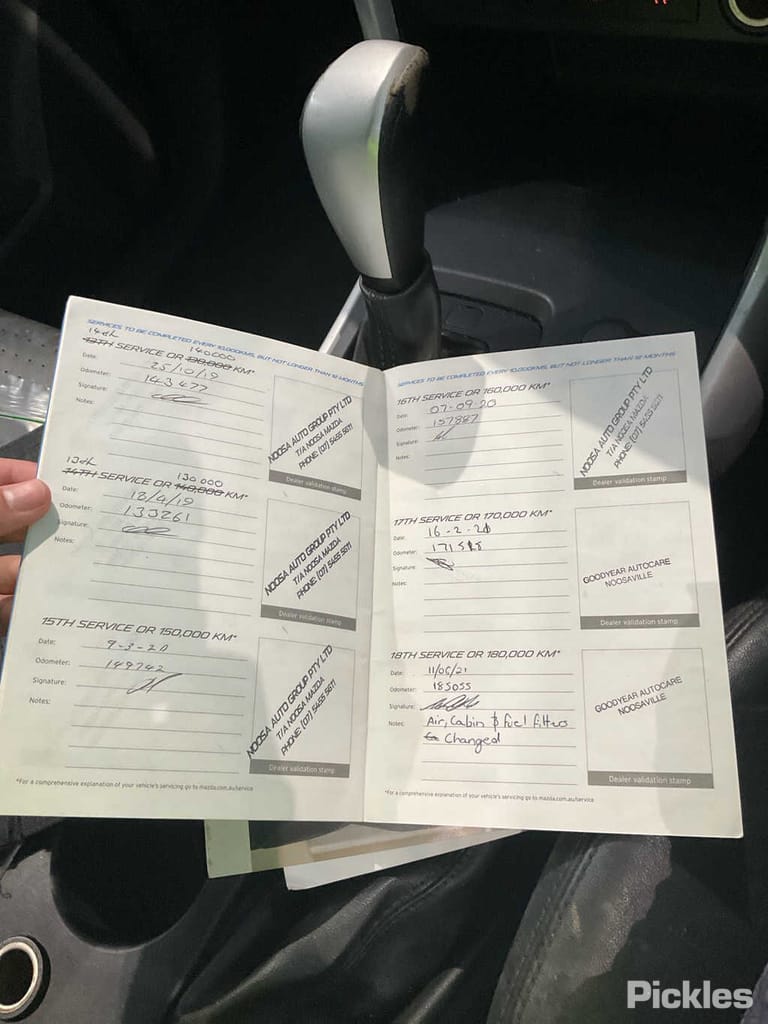 SERVICES TO BE COMPLETED EVERY 10,000KMS, BUT NOT LONGER THAN 12 MONTHS
14th 140000
13TH SERVICE OR 130,000 KM*
Date: 25/10/19
Odometer: 143477
Signature:
Notes:
NOOSA AUTO GROUP PTY LTD
T/A NOOSA MAZDA
PHONE: (07) 5455 5611
Dealer validation stamp
13th 130 000
14TH SERVICE OR 140,000 KM*
Date: 12/4/19
Odometer: 133261
Signature:
Notes:
NOOSA AUTO GROUP PTY LTD
T/A NOOSA MAZDA
PHONE: (07) 5455 5611
Dealer validation stamp
15TH SERVICE OR 150,000 KM*
Date: 9-3-20
Odometer: 149742
Signature:
Notes:
NOOSA AUTO GROUP PTY LTD
T/A NOOSA MAZDA
PHONE: (07) 5455 5611
Dealer validation stamp
*For a comprehensive explanation of your vehicle's servicing go to mazda.com.au/service
SERVICES TO BE COMPLETED EVERY 10,000KMS, BUT NOT LONGER THAN 12 MONTHS
16TH SERVICE OR 160,000 KM*
Date: 07-09-20
Odometer: 157887
Signature:
Notes:
NOOSA AUTO GROUP PTY LTD
T/A NOOSA MAZDA
PHONE: (07) 5455 5611
Dealer validation stamp
17TH SERVICE OR 170,000 KM*
Date: 16-2-21
Odometer:
Signature:
Notes:
GOODYEAR AUTOCARE
NOOSAVILLE
Dealer validation stamp
18TH SERVICE OR 180,000 KM*
Date: 11/06/21
Odometer: 185055
Signature:
Notes: Air, Cabin & Fuel filters
Changed
GOODYEAR AUTOCARE
NOOSAVILLE
Dealer validation stamp
*For a comprehensive explanation of your vehicle's servicing go to mazda.com.au/service
Pickles